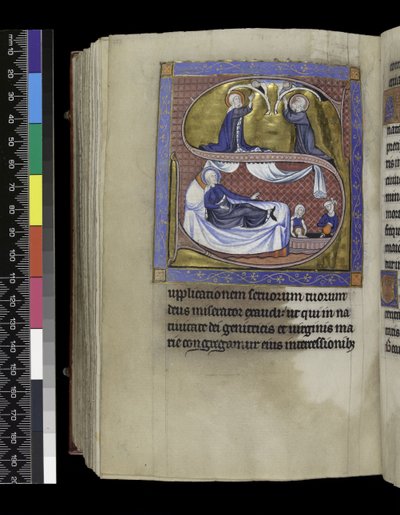 mm 10 20 30 40 50 60 70 80 90 100 110 120 130 140 150 160 170 180 190
Supplicationem seruorum tuorum
deus miserator exaudi: ut qui in na
tiuitate dei genitricis et uirginis ma
rie congregamur eius intercessionibȝ